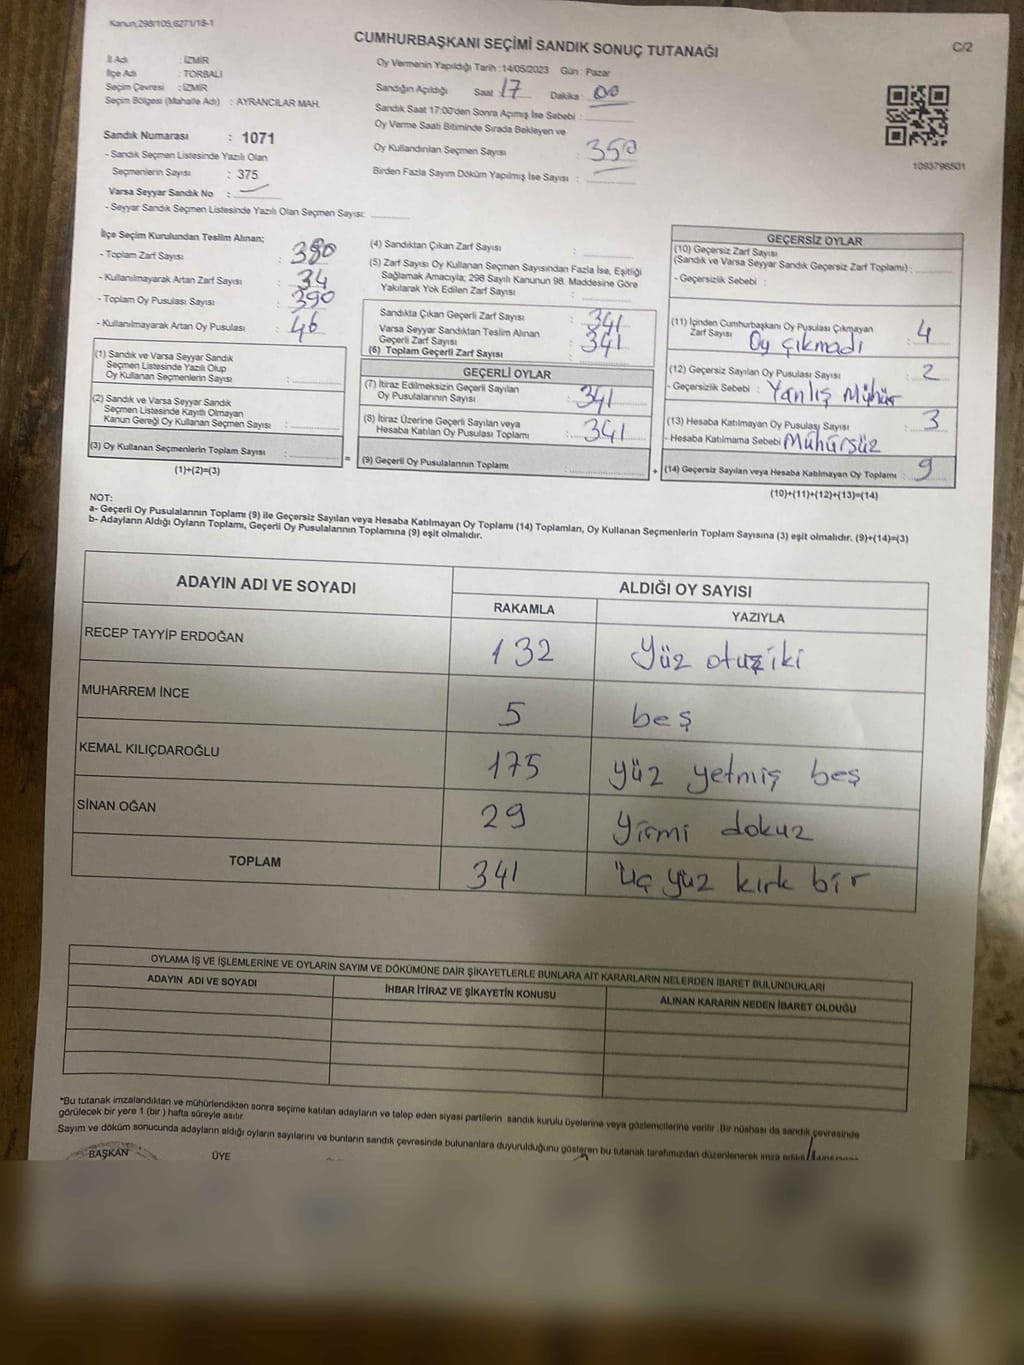 Kanun,298/105,6271/18-1
CUMHURBAŞKANI SEÇİMİ SANDIK SONUÇ TUTANAĞI
C/2
İl Adı : İZMİR
İlçe Adı : TORBALI
Seçim Çevresi : İZMİR
Seçim Bölgesi (Mahalle Adı) : AYRANCILAR MAH.
Sandık Numarası : 1071
- Sandık Seçmen Listesinde Yazılı Olan
Seçmenlerin Sayısı : 375
Varsa Seyyar Sandık No :
- Seyyar Sandık Seçmen Listesinde Yazılı Olan Seçmen Sayısı:
Oy Vermenin Yapıldığı Tarih :14/05/2023 Gün : Pazar
Sandığın Açıldığı Saat 17 Dakika : 00
Sandık Saat 17:00'den Sonra Açılmış İse Sebebi :
Oy Verme Saati Bitiminde Sırada Bekleyen ve
Oy Kullandırılan Seçmen Sayısı : 350
Birden Fazla Sayım Döküm Yapılmış İse Sayısı :
1093796501
İlçe Seçim Kurulundan Teslim Alınan;
- Toplam Zarf Sayısı : 380
- Kullanılmayarak Artan Zarf Sayısı : 34
- Toplam Oy Pusulası Sayısı : 390
- Kullanılmayarak Artan Oy Pusulası : 46
(1) Sandık ve Varsa Seyyar Sandık
Seçmen Listesinde Yazılı Olup
Oy Kullanan Seçmenlerin Sayısı :
(2) Sandık ve Varsa Seyyar Sandık
Seçmen Listesinde Kayıtlı Olmayan
Kanun Gereği Oy Kullanan Seçmen Sayısı :
(3) Oy Kullanan Seçmenlerin Toplam Sayısı :
(1)+(2)=(3)
=
(4) Sandıktan Çıkan Zarf Sayısı :
(5) Zarf Sayısı Oy Kullanan Seçmen Sayısından Fazla İse, Eşitliği
Sağlamak Amacıyla; 298 Sayılı Kanunun 98. Maddesine Göre
Yakılarak Yok Edilen Zarf Sayısı :
Sandıkta Çıkan Geçerli Zarf Sayısı : 341
Varsa Seyyar Sandıktan Teslim Alınan
Geçerli Zarf Sayısı : 341
(6) Toplam Geçerli Zarf Sayısı :
GEÇERLİ OYLAR
(7) İtiraz Edilmeksizin Geçerli Sayılan
Oy Pusulalarının Sayısı : 341
(8) İtiraz Üzerine Geçerli Sayılan veya
Hesaba Katılan Oy Pusulası Toplamı : 341
(9) Geçerli Oy Pusulalarının Toplamı :
+
GEÇERSİZ OYLAR
(10) Geçersiz Zarf Sayısı
(Sandık ve Varsa Seyyar Sandık Geçersiz Zarf Toplamı) :
- Geçersizlik Sebebi :
(11) İçinden Cumhurbaşkanı Oy Pusulası Çıkmayan
Zarf Sayısı : 4
Oy çıkmadı
(12) Geçersiz Sayılan Oy Pusulası Sayısı : 2
- Geçersizlik Sebebi : Yanlış Mühür
(13) Hesaba Katılmayan Oy Pusulası Sayısı : 3
- Hesaba Katılmama Sebebi Mühürsüz
(14) Geçersiz Sayılan veya Hesaba Katılmayan Oy Toplamı : 9
(10)+(11)+(12)+(13)=(14)
NOT:
a- Geçerli Oy Pusulalarının Toplamı (9) ile Geçersiz Sayılan veya Hesaba Katılmayan Oy Toplamı (14) Toplamları, Oy Kullanan Seçmenlerin Toplam Sayısına (3) eşit olmalıdır. (9)+(14)=(3)
b- Adayların Aldığı Oyların Toplamı, Geçerli Oy Pusulalarının Toplamına (9) eşit olmalıdır.
ADAYIN ADI VE SOYADI
ALDIĞI OY SAYISI
RAKAMLA YAZIYLA
RECEP TAYYİP ERDOĞAN 132 Yüz otuz iki
MUHARREM İNCE 5 beş
KEMAL KILIÇDAROĞLU 175 yüz yetmiş beş
SİNAN OĞAN 29 Yirmi dokuz
TOPLAM 341 Üç yüz kırk bir
OYLAMA İŞ VE İŞLEMLERİNE VE OYLARIN SAYIM VE DÖKÜMÜNE DAİR ŞİKAYETLERLE BUNLARA AİT KARARLARIN NELERDEN İBARET BULUNDUKLARI
ADAYIN ADI VE SOYADI İHBAR İTİRAZ VE ŞİKAYETİN KONUSU ALINAN KARARIN NEDEN İBARET OLDUĞU
*Bu tutanak imzalandıktan ve mühürlendikten sonra seçime katılan adayların ve talep eden siyasi partilerin sandık kurulu üyelerine veya gözlemcilerine verilir .Bir nüshası da sandık çevresinde
görülecek bir yere 1 (bir ) hafta süreyle asılır.
Sayım ve döküm sonucunda adayların aldığı oyların sayılarını ve bunların sandık çevresinde bulunanlara duyurulduğunu gösteren bu tutanak tarafımızdan düzenlenerek imza edildi.
BAŞKAN ÜYE